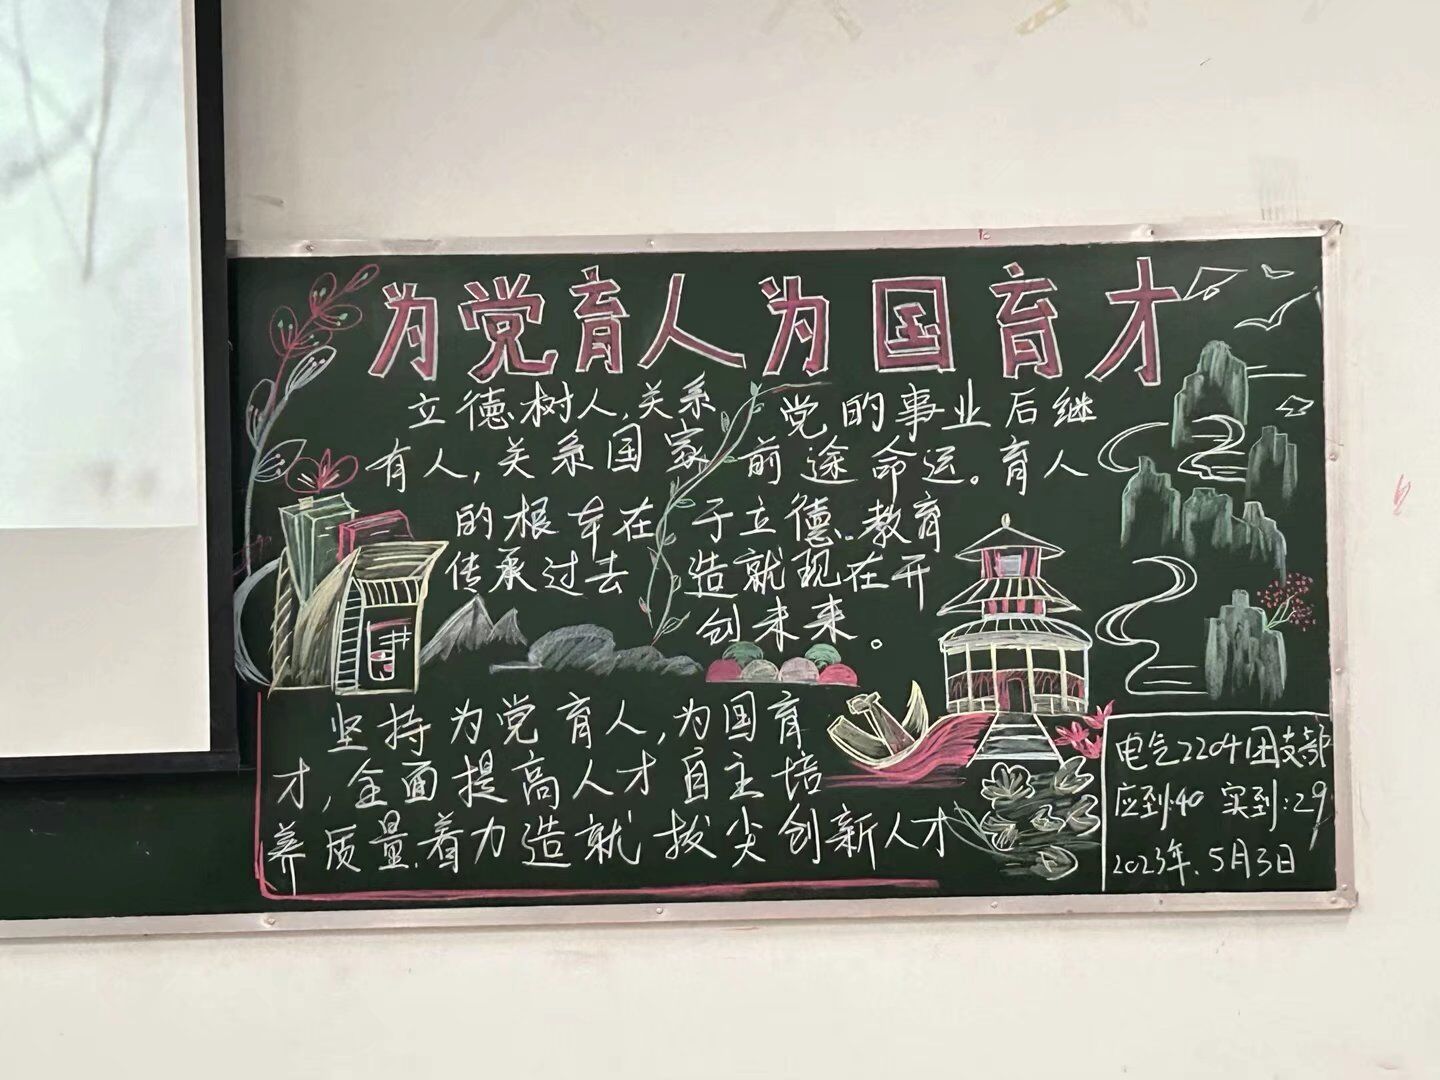 为党育人为国育才
立德树人,关系党的事业后继
有人,关系国家前途命运。育人
的根本在于立德.教育
传承过去造就现在开
创未来。
坚持为党育人,为国育
才,全面提高人才自主培
养质量.着力造就拔尖创新人才
电气2204团支部
应到:40 实到:29
2023年.5月3日